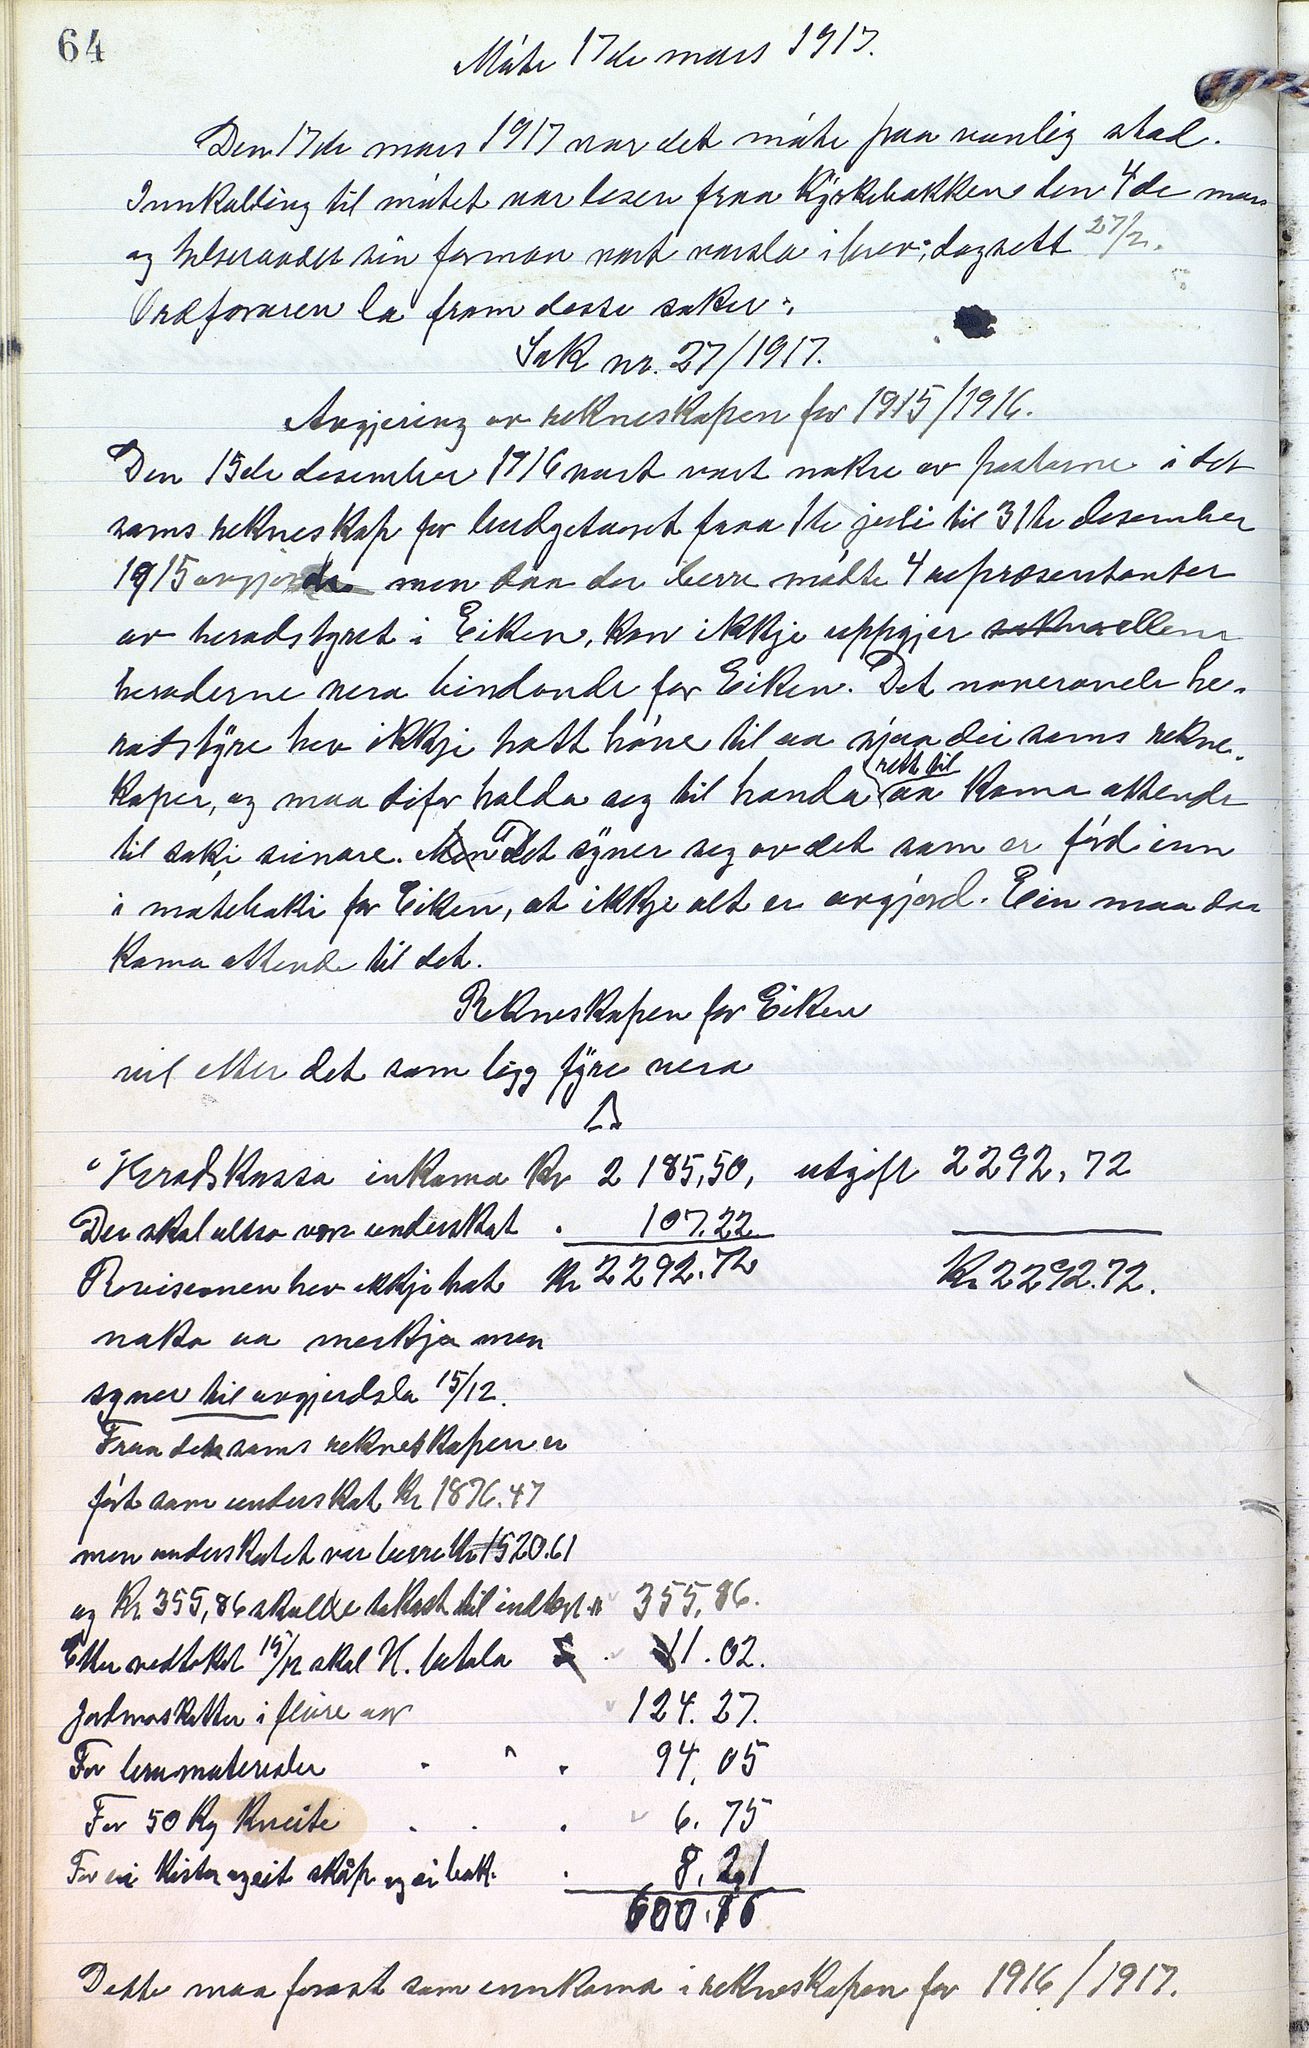 64
Møte 17de mars 1917.
Den 17de mars 1917 var det møte paa vanlig stad.
Innkalding til møtet var lesen fraa Kyrkebakken den 4de mars
og helseraadet sin forman vart varsla i brev, dagsett 27/2.
Ordføraren la fram desse saker:
Sak nr. 27/1917.
Avgjering av rekneskapen for 1915/1916.
Den 15de desember 1916 vart vart nokre av postarne i det
sams rekneskap for budgetaaret fraa 1te juli til 31te desember
1915 avgjorde men daa der berre møtte 4 representanter
av heradstyret i Eiken, kan ikkje uppgjer millom
heraderne vera bindande for Eiken. Det noverande he-
radstyre hev ikkje hatt høve til aa sjaa dei sams rekne-
kaper, og maa difor halda seg til handa rett til aa koma attende
til saki seinare. Men Det syner seg av det som er förd inn
i møteboki for Eiken, at ikkje alt er avgjord. Ein maa daa
koma attende til det.
Rekneskapen for Eiken
vil etter det som ligg fyre vera
Heradskassa inkoma Kr 2185,50, utgift 2292,72
Der skal altso vere underskot 107.22
Revisionen hev ikkje hat Kr 2292.72 Kr 2292.72.
noko aa merkja men
syner til avgjerdsla 15/12.
Fraa det sams rekneskapen er
ført som underskot Kr 1876.47
men underskotet var berre Kr 1520.61
og Kr. 355,86 skulde takast til indtekt 355,86.
Etter vedtaket 15/12 skal H. betala 11.02.
Jordmorskatter i fleire aar 124.27.
For brumaterialer 94,05
For 50 Kg Kveite 6.75
For ei kista og eit skåp og ei bok. 8,21
600.16
Dette maa førast som innkoma i rekneskapen for 1916/1917.